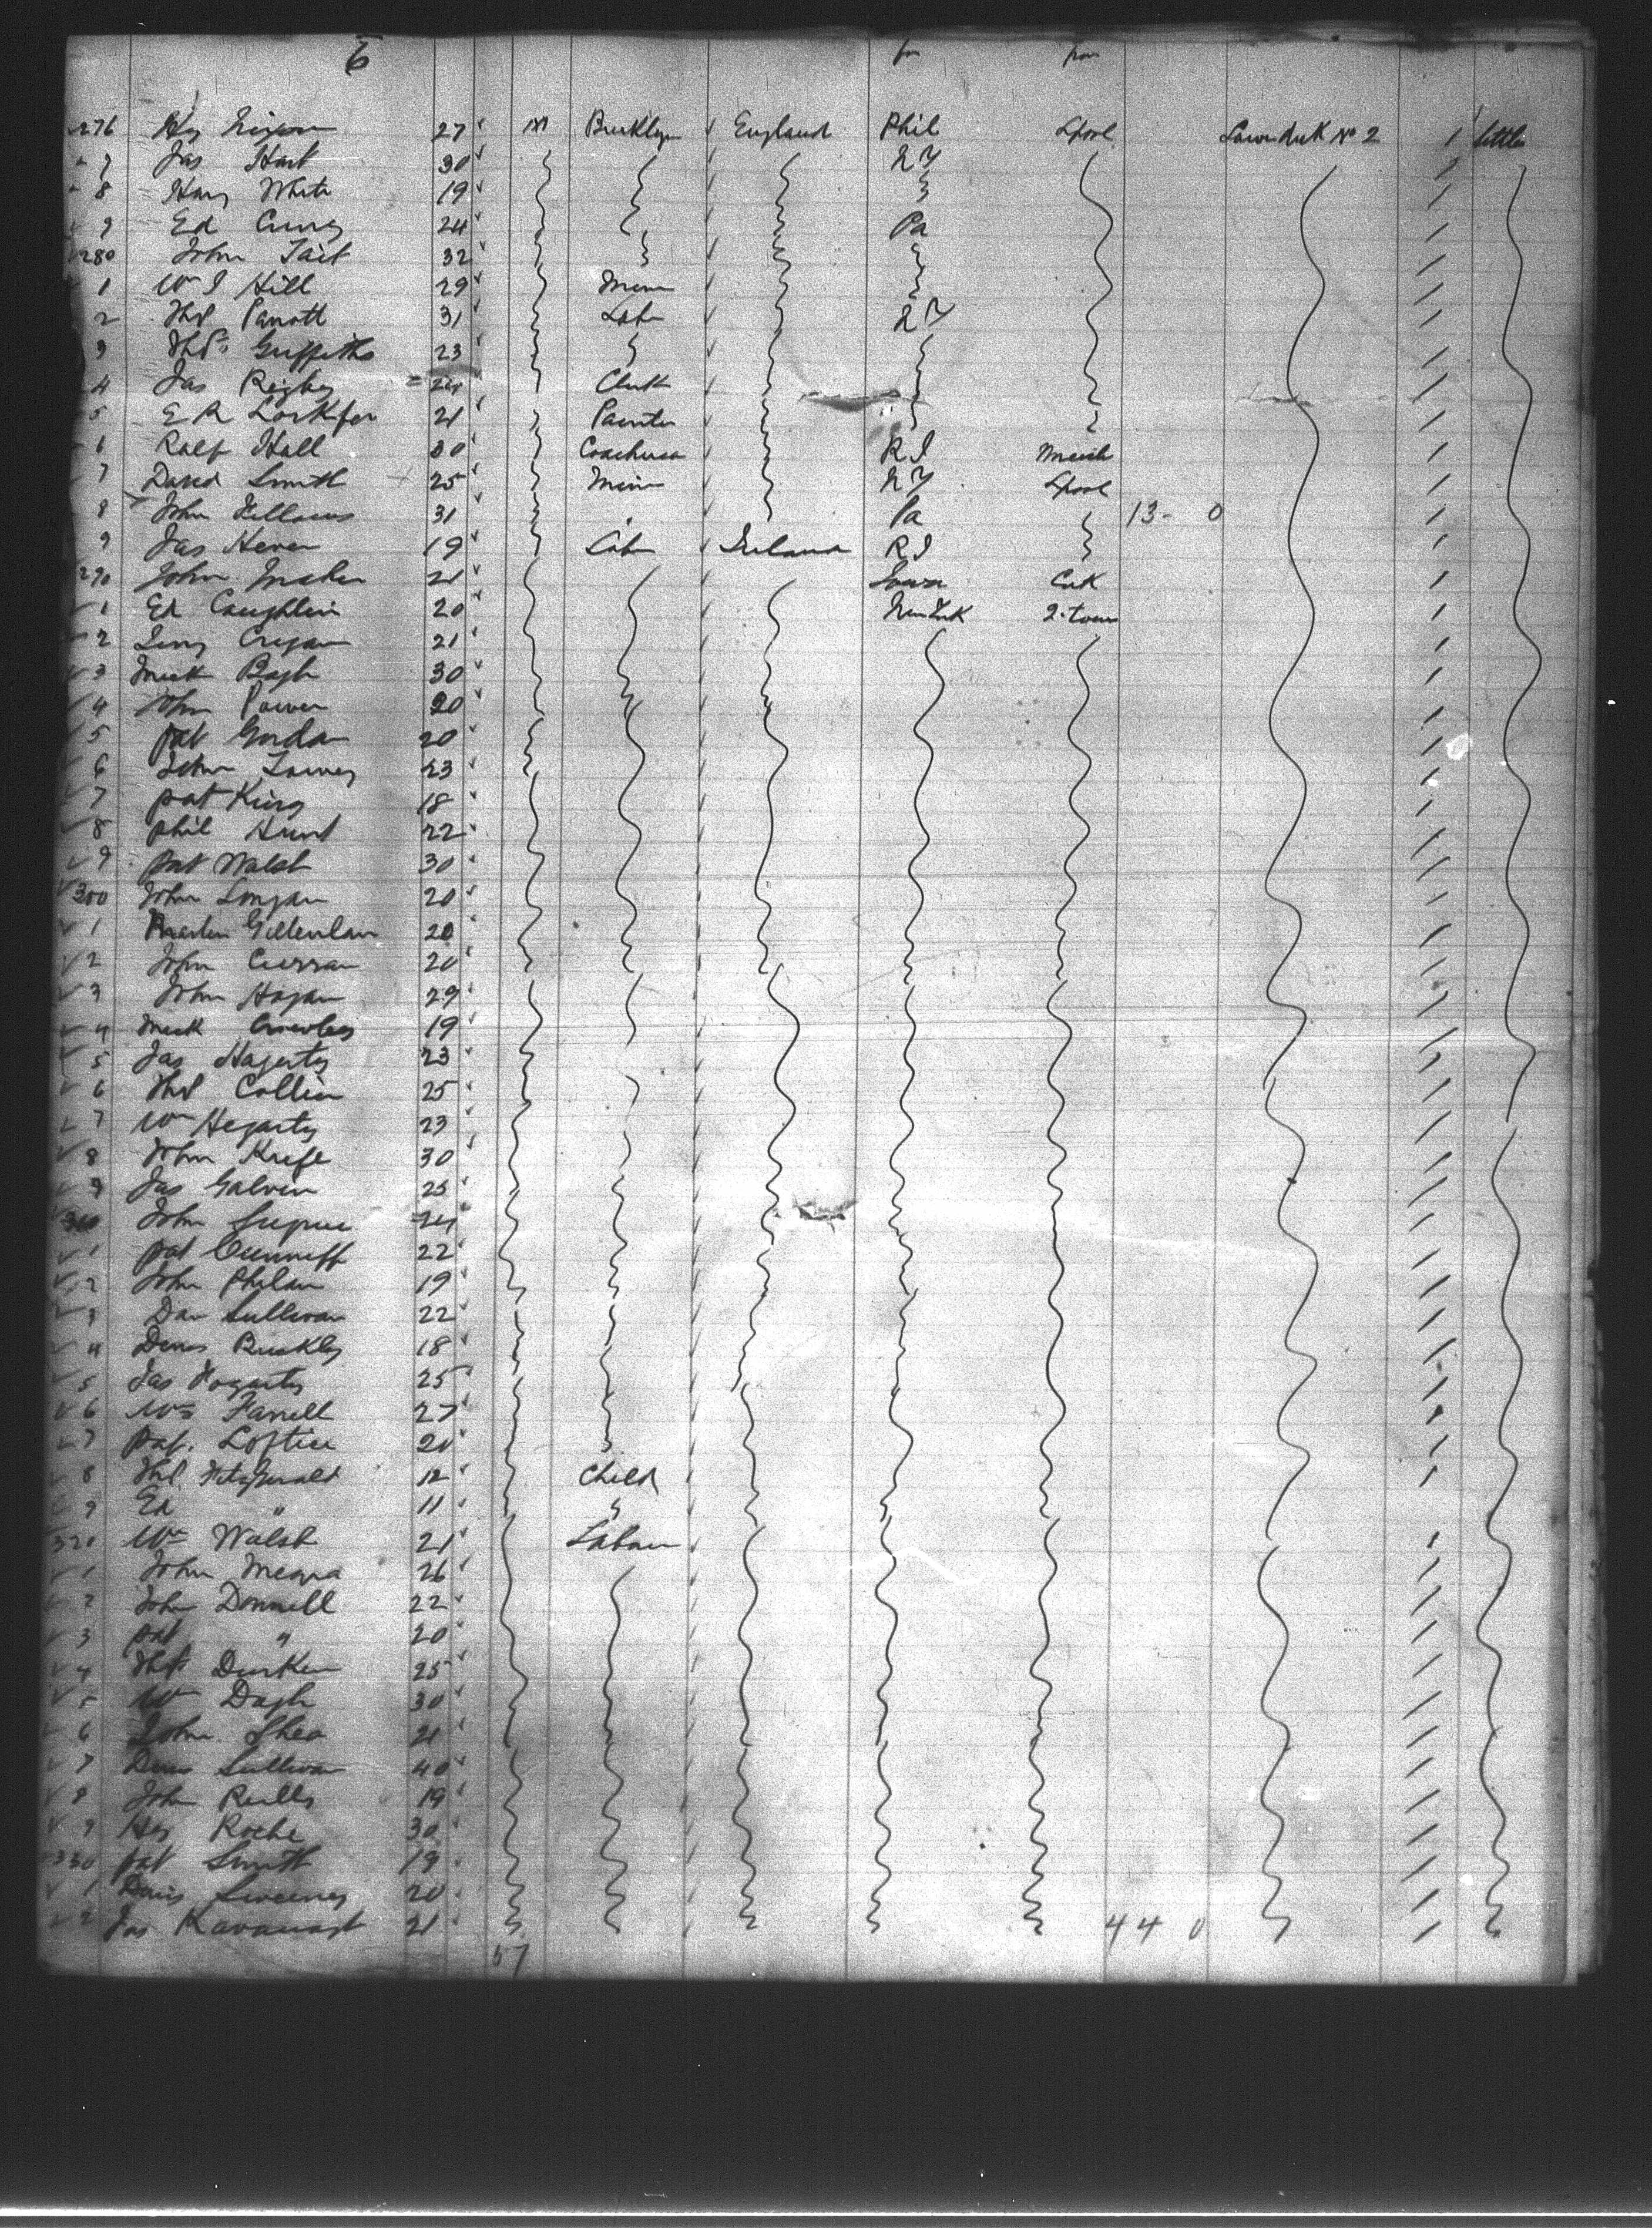 6 for from
276 Hy 27 M England Phil Lpool Lower deck No 2 1 Settler
7 Jas Hart 30 NY
8 Harry White 19
9 Ed 24 Pa
280 John Tait 32
1 Wm J Hill 29 Miner
2 Thos Parrott 31 Labr NY
3 Thos Griffiths 23
4 Jas Rigby 24 Clerk
5 E R 21 Painter
6 Ralf Hall 30 R I
7 David Smith 25 Miner NY Lpool
8 John Fellows 31 Pa 13 - 0
9 Jas 19 Labr Ireland R I
290 John 21 Iowa
1 Ed Coughlin 20 New York Q-town
2 Cregan 21
3 Mick 30
4 John Power 20
5 pat 20
6 John 23
7 pat King 18
8 phil Hunt 22
9 pat Walsh 30
300 John 20
1 Martin 20
2 John Curran 20
3 John Hogan 29
4 Mick 19
5 Jas Hagerty 23
6 Thos 25
7 Wm Hegarty 23
8 John 30
9 Jas Galvin 25
310 John 24
1 pat Cunniff 22
2 John Phelan 19
3 Dan Sullivan 22
4 Denis Buckley 18
5 Jas Hogarty 25
6 Wm Farrell 27
7 pat. Loftus 20
8 Thos Fitzgerald 12 Child
9 Ed " 11
320 Wm Walsh 21 Labour
1 John 26
2 John Donnell 22
3 pat " 20
4 Thos Durken 25
5 Wm 30
6 John Shea 21
7 Denis Sullivan 40
8 John Reilly 19
9 Hy Roche 30
330 pat Smith 19
1 Denis Sweeney 20
2 Jas Kavanagh 21 44 0
57